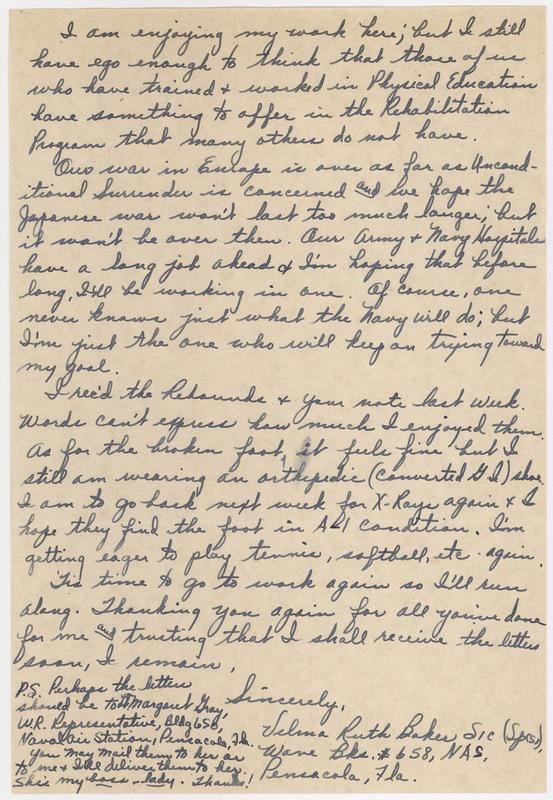 I am enjoying my work here; but I still
have ego enough to think that those of us
who have trained & worked in Physical Education
have something to offer in the Rehabilitation
Program that many others do not have.
Our war in Europe is over as far as Uncond-
itional Surrender is concerned and we hope the
Japanese war won't last too much longer; but
it won't be over then. Our Army & Navy Hospitals
have a long job ahead & I'm hoping that before
long, I'll be working in one. Of course, one
never knows just what the Navy will do; but
I'm just the one who will keep on trying toward
my goal.
I rec'd the Rebounds & your note last week.
Words can't express how much I enjoyed them.
As for the broken foot, it feels fine but I
still am wearing an orthepedic (converted G I) shoe.
I am to go back next week for X-Rays again & I
hope they find the foot in A-1 condition. I'm
getting eager to play tennis, softball, etc. again.
'Tis time to go to work again so I'll run
along. Thanking you again for all you've done
for me and trusting that I shall receive the letters
soon, I remain,
Sincerely,
Velma Ruth Baker S1c (Sp(s)),
Wave Bks. # 658, NAS,
Pensacola, Fla.
P.S. Perhaps the letters
should be to Lt. Margaret Gray,
W.R. Representative, Bldg 658,
Naval Air Station, Pensacola, Fla.
You may mail them to her or
to me & I'll deliver them to her.
She's my boss - lady. Thanks!